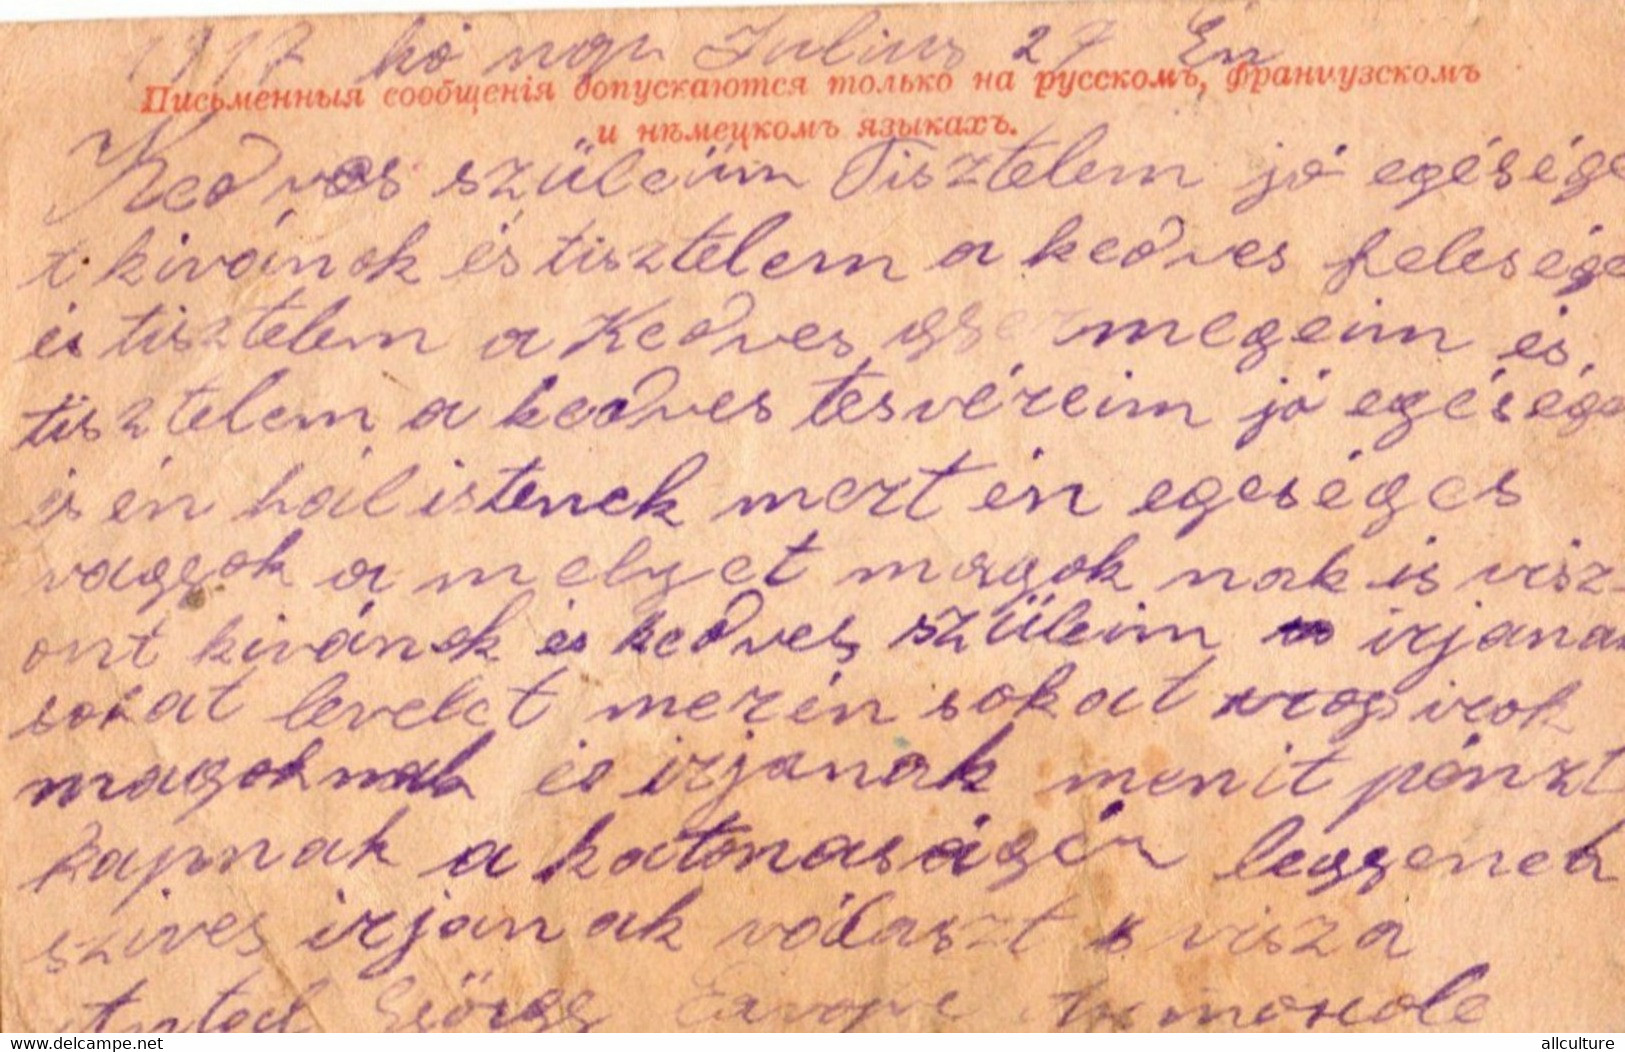 1917 kö Julius 27 Én
Письменныя сообщенія допускаются только на русскомъ, французскомъ
и нѣмецкомъ языкахъ.
Kedves szüleüm Tisztelem jó egésége
t kivánok és tisztelem a kedves felesége
és tisztelem a Kedves megeim és
tisztelem a kedves tesvéreim jó egésége
is én hál istenek mert én egeséges
vagyok a melyet magok nak is visz-
ont kivánok és kedves szüleim irjanak
sokat levelet merén sokat irok
magoknak és irjanak menit pénzt
kapnak a katonaságér leggenek
szives irjanak választ s visza
György
www.delcampe.net
allculture